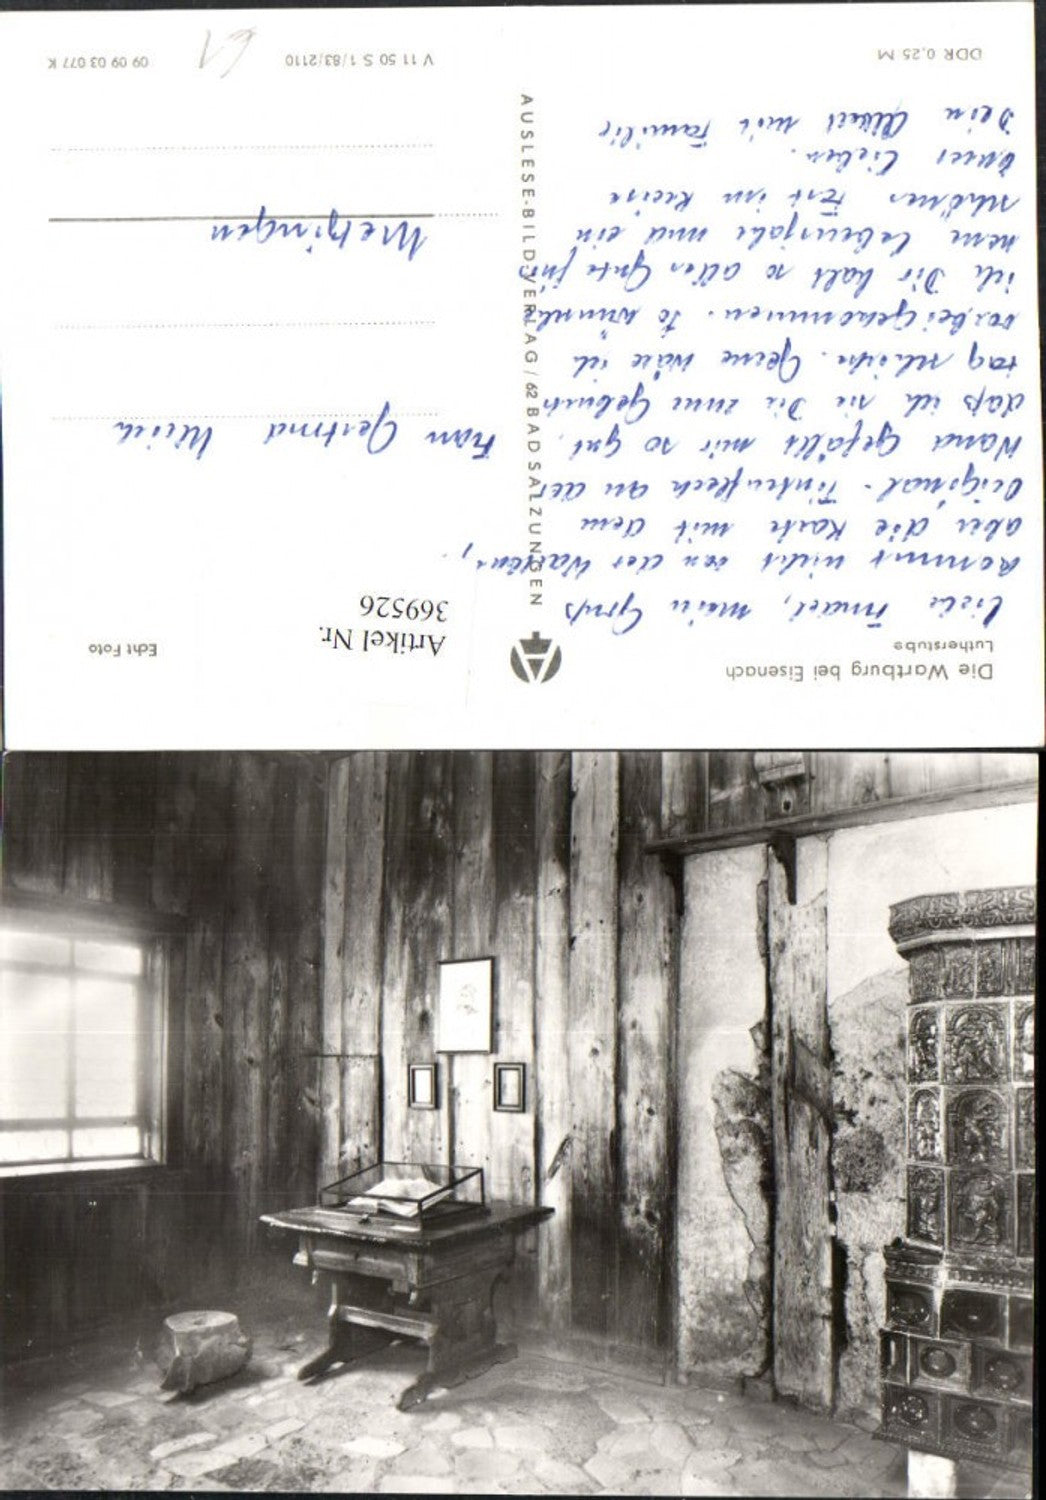 Die Wartburg bei Eisenach
Lutherstube
Liebe Trudel, mein Gruß
kommt nicht von der Wartburg,
aber die Karte mit dem
Original-Tintenfleck an der
Wand gefällt mir so gut,
daß ich sie Dir zum Geburts
tag schicke. Gerne wäre ich
vorbeigekommen. So wünsche
ich Dir halt so alles Gute für's
neue Lebensjahr und ein
schönes Fest im Kreise
Deiner Lieben.
Dein mit Familie
DDR 0,25 M
AUSLESE-BILD-VERLAG / 62 BAD SALZUNGEN
Echt Foto
Artikel Nr.
369526
Frau Gertrud
Metzingen
V 11 50 S 1/83/2110
09 09 03 077 K